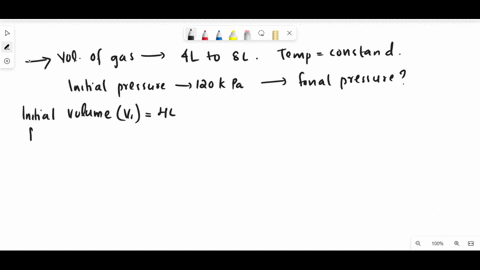 → Vol. of gas → 4L to 8L. Temp = constand.
Initial pressure → 120 k Pa → fonal pressure?
Initial volume (V₁) = 4L
P
100%